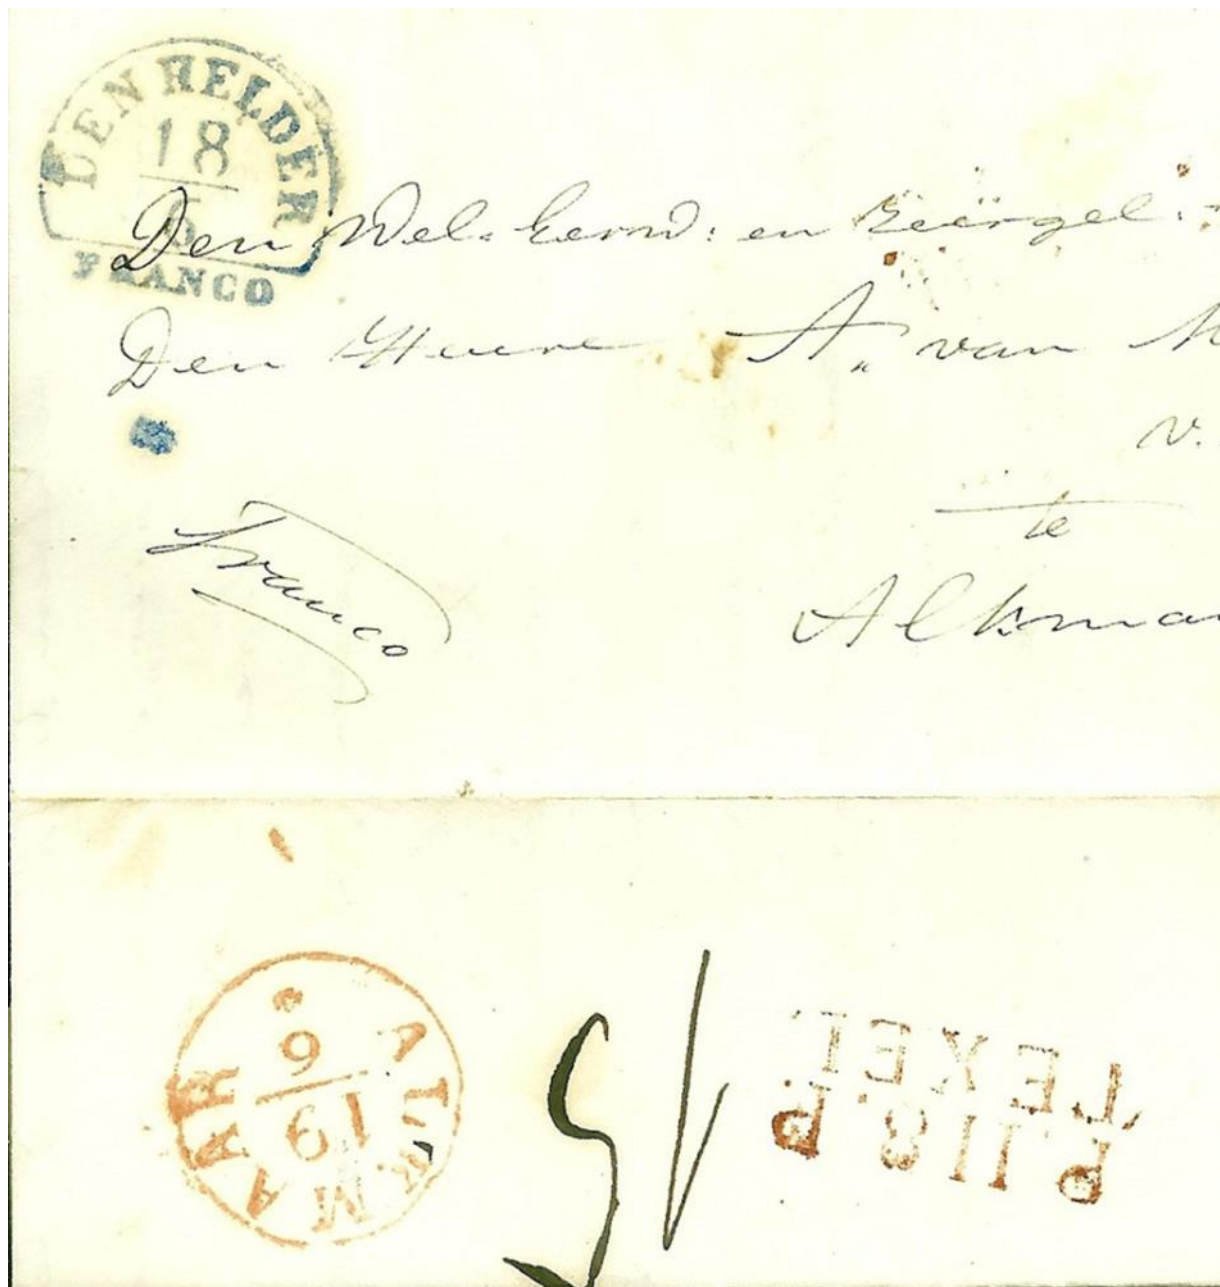 DEN HELDER
18
6
FRANCO
Den Wel. Eerw: en Zeergel:
Den Heere A„ van M
v.
te
Franco
Alkma
ALKMAAR
19
6
15
P.118.P
TEXEL.